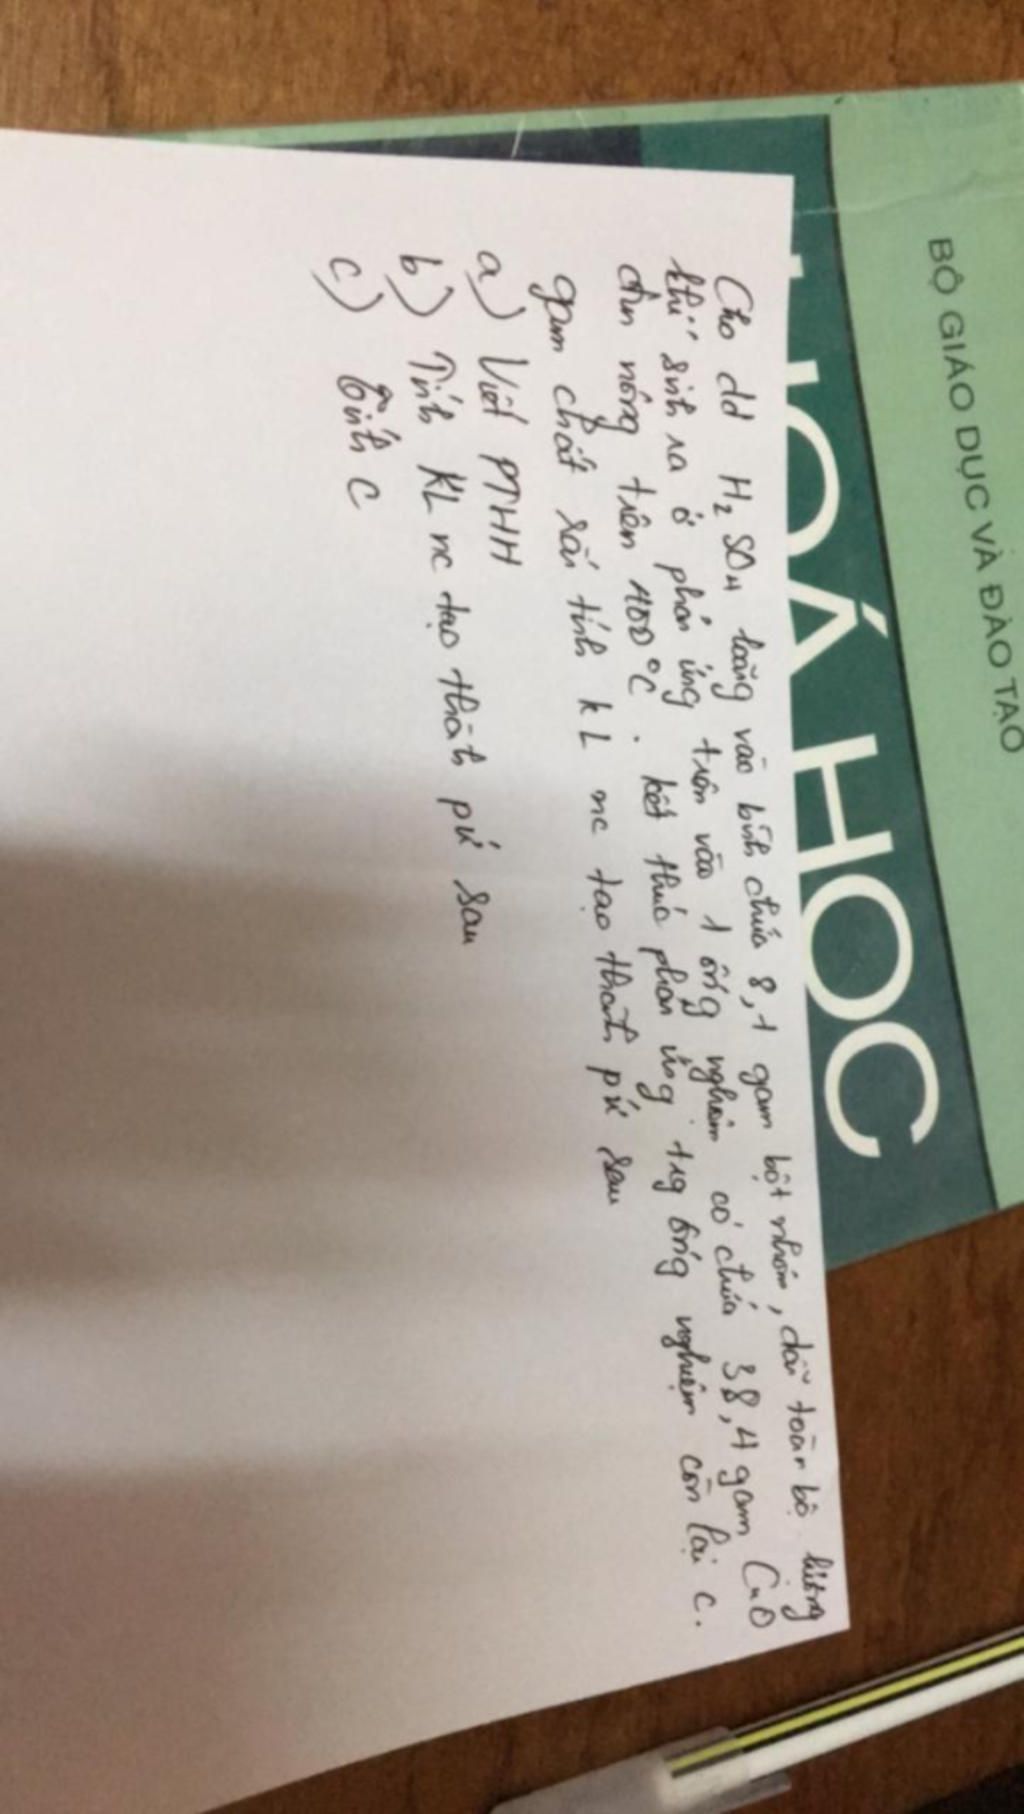 BỘ GIÁO DỤC VÀ ĐÀO TẠO
HOÁ HỌC
Cho dd H₂SO₄ loãng vào bình chứa 8,1 gam bột nhôm, dẫn toàn bộ lượng
khí sinh ra ở phản ứng trên vào 1 ống nghiệm có chứa 38,4 gam CuO
đun nóng trên 400°C. kết thúc phản ứng trg ống nghiệm còn lại c.
gam chất rắn tính kL nc tạo thành pứ sau
a) Viết PTHH
b) Tính KL nc tạo thành pứ sau
c) Tính C